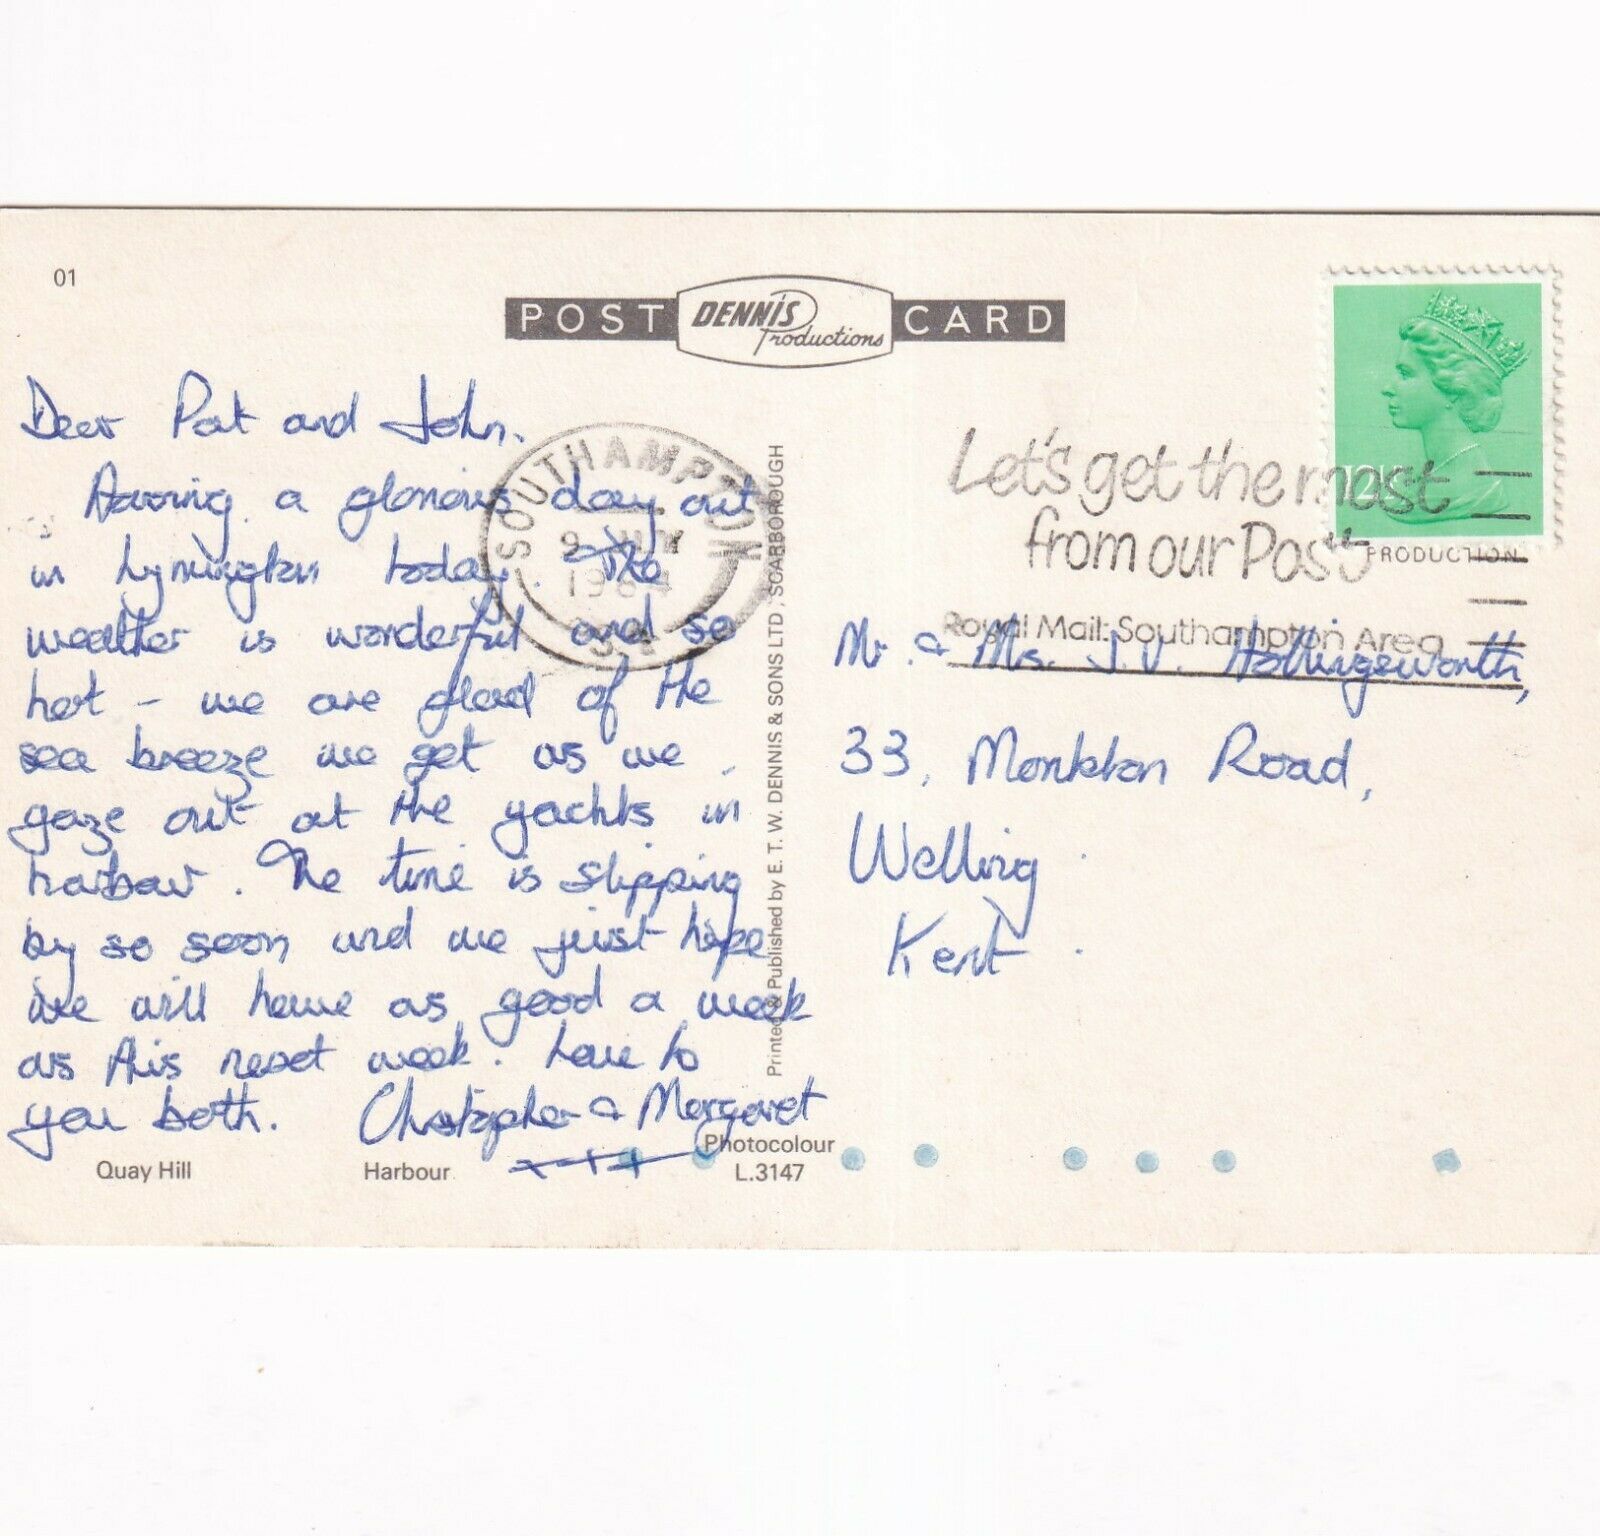 01
POST DENNIS Productions CARD
Dear Pat and John,
Having a glorious day out
in Lymington today. The
weather is wonderful and so
hot - we are glad of the
sea breeze we get as we
gaze out at the yachts in
harbour. The time is slipping
by so soon and we just hope
we will have as good a week
as this next week. Love to
you both. Christopher & Margaret
Quay Hill
Harbour
Photocolour
L.3147
SOUTHAMPTON
1984
Printed & Published by E. T. W. DENNIS & SONS LTD., SCARBOROUGH
Let's get the most
from our Post
Royal Mail: Southampton Area
12½
PRODUCTION
Mr. & Mrs. J.V. Hollingsworth,
33, Monkton Road,
Welling
Kent.